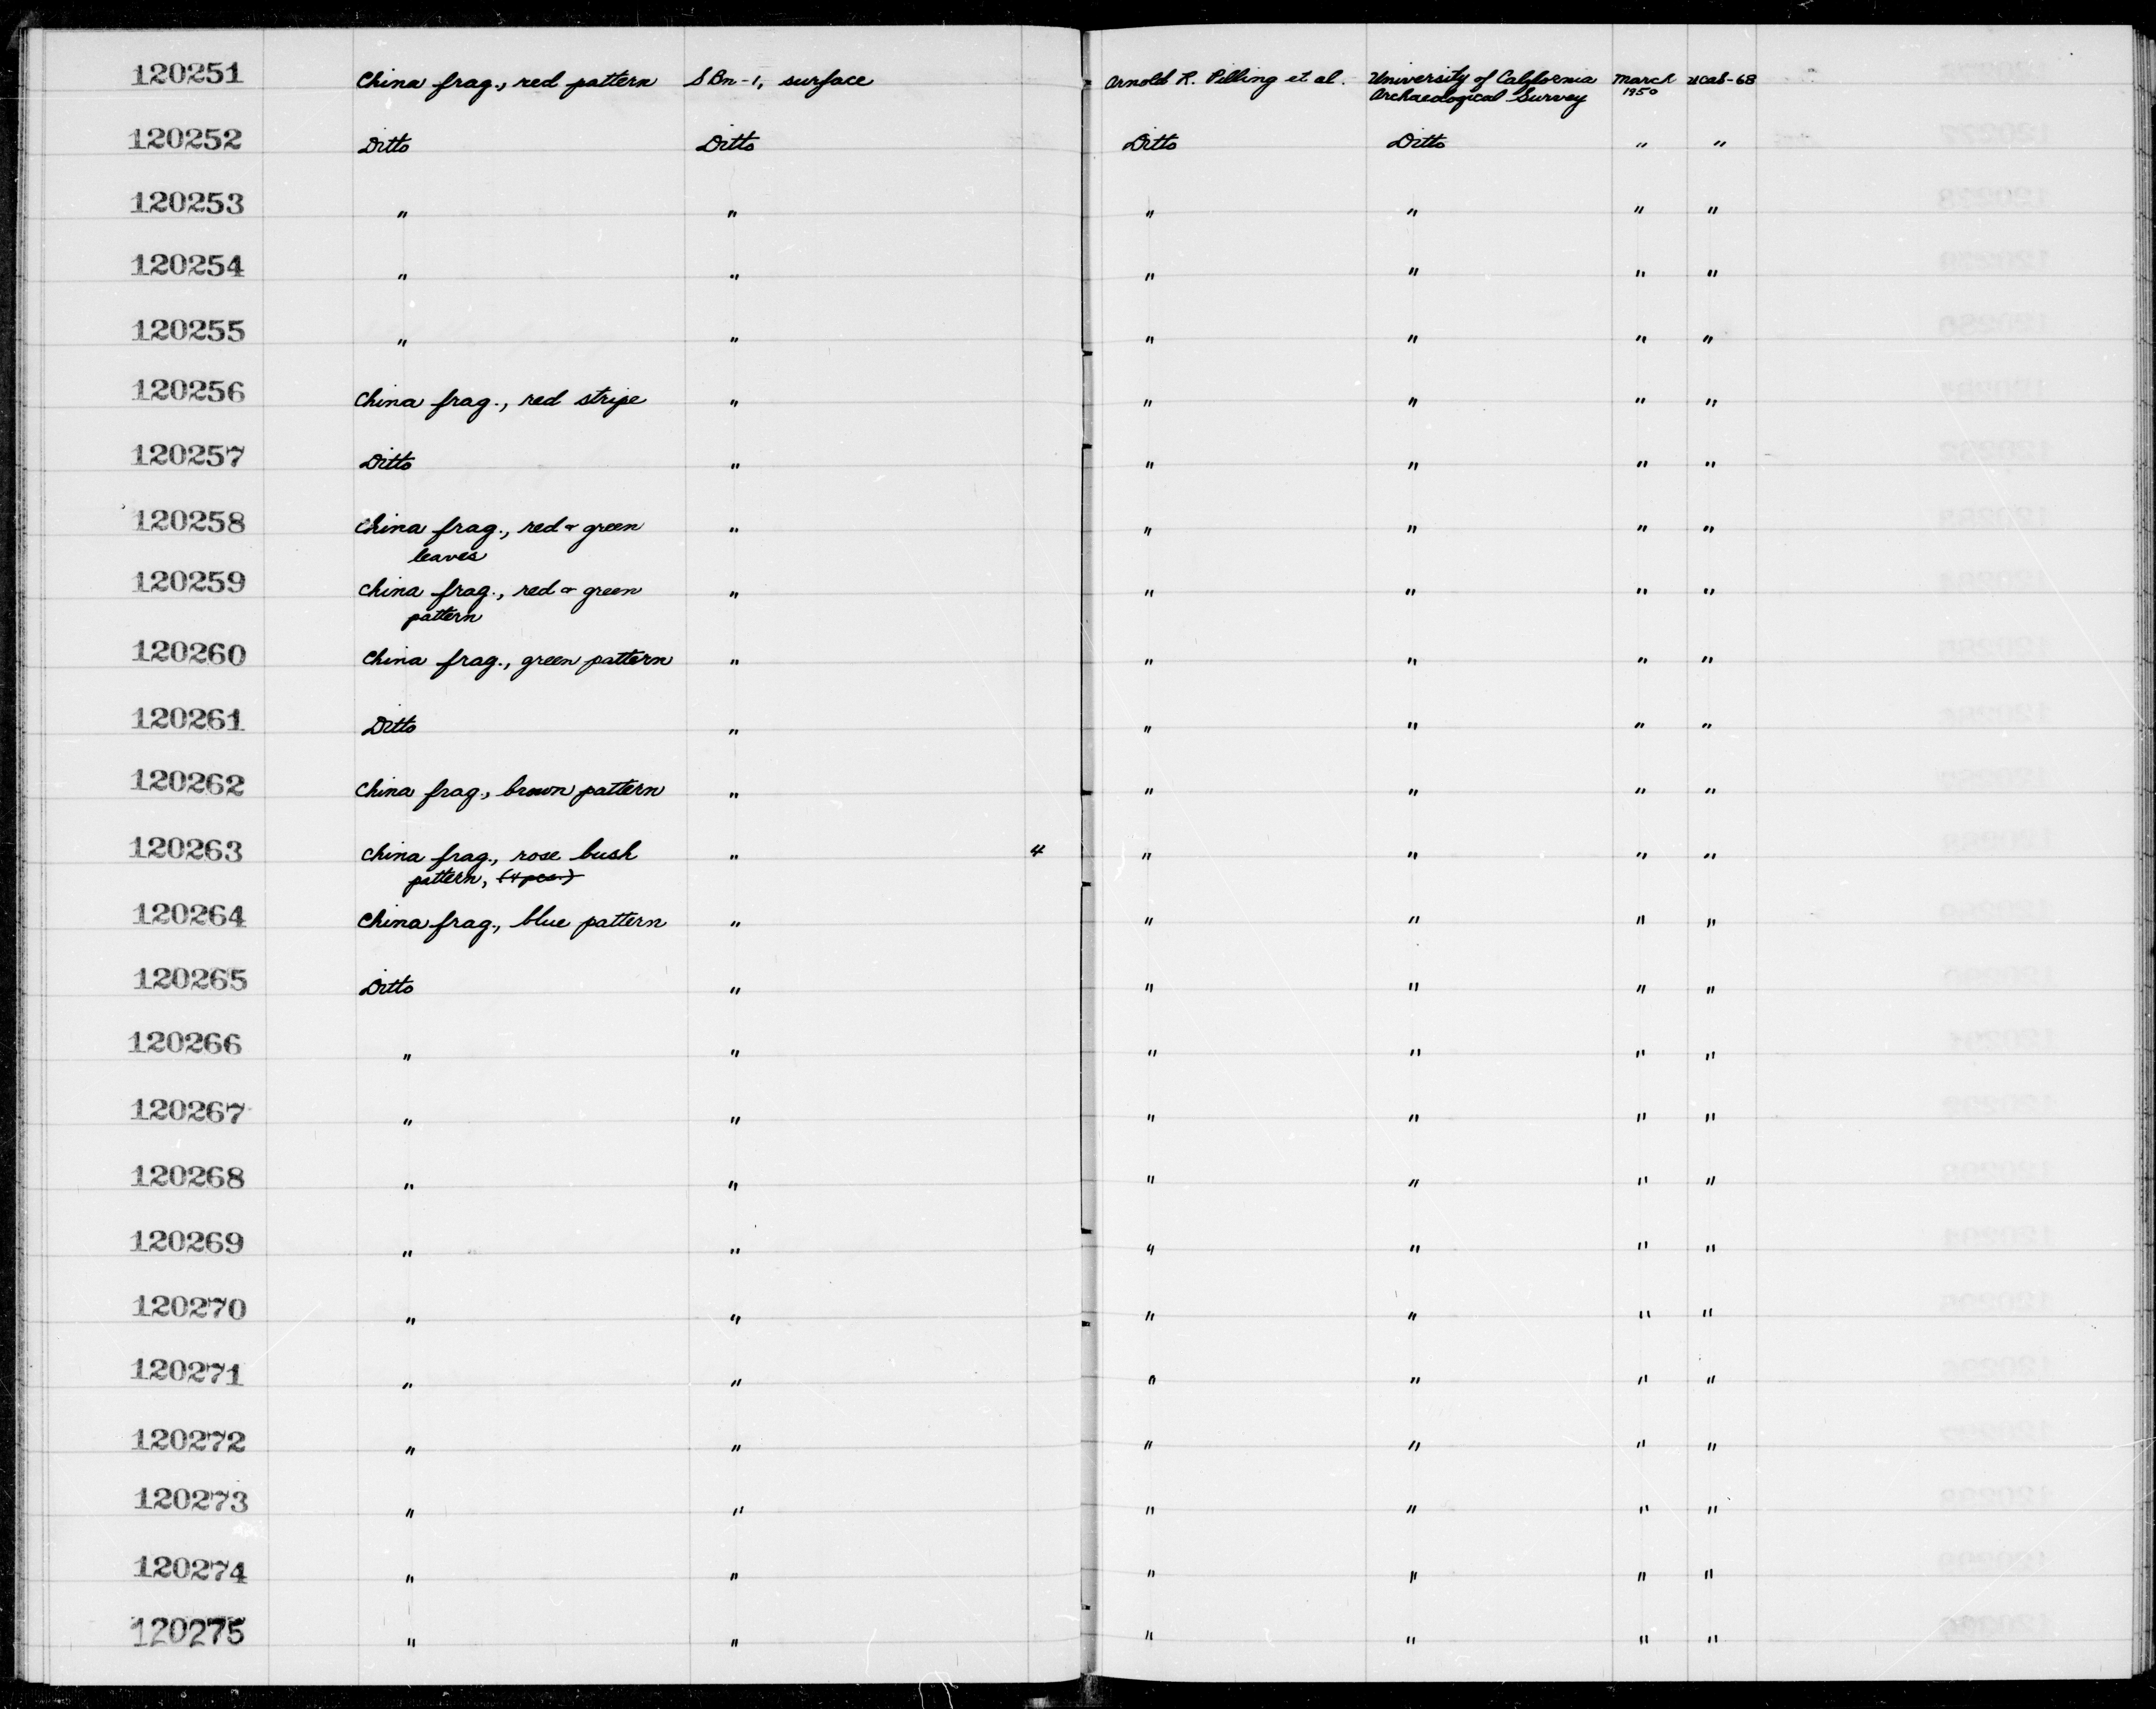 120251 China frag., red pattern SBn-1, surface Arnold R. Pilling et al. University of California Archaeological Survey March 1950 UCAS-68
120252 Ditto Ditto Ditto Ditto " "
120253 " " " " " "
120254 " " " " " "
120255 " " " " " "
120256 China frag., red stripe " " " " "
120257 Ditto " " " " "
120258 China frag., red & green leaves " " " " "
120259 China frag., red & green pattern " " " " "
120260 China frag., green pattern " " " " "
120261 Ditto " " " " "
120262 China frag., brown pattern " " " " "
120263 China frag., rose bush pattern, (4 pcs.) " 4 " " " "
120264 China frag., blue pattern " " " " "
120265 Ditto " " " " "
120266 " " " " " "
120267 " " " " " "
120268 " " " " " "
120269 " " " " " "
120270 " " " " " "
120271 " " " " " "
120272 " " " " " "
120273 " " " " " "
120274 " " " " " "
120275 " " " " " "